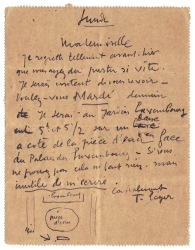 Lundi
Mademoiselle
Je regrette tellement avant-hier
que vous ayez du partir si vite.
Je serais content de vous revoir
Voulez-vous Mardi demain
Je serai au Jardin Luxembourg
5h et 5 1/2 sur un banc
a coté de la pièce d'eau face
du Palais du Luxembourg - Si vous
ne pouvez pas cela ne fait rien mais
inutile de m'écrire.
Cordialement
Luxembourg
pièce
d'eau